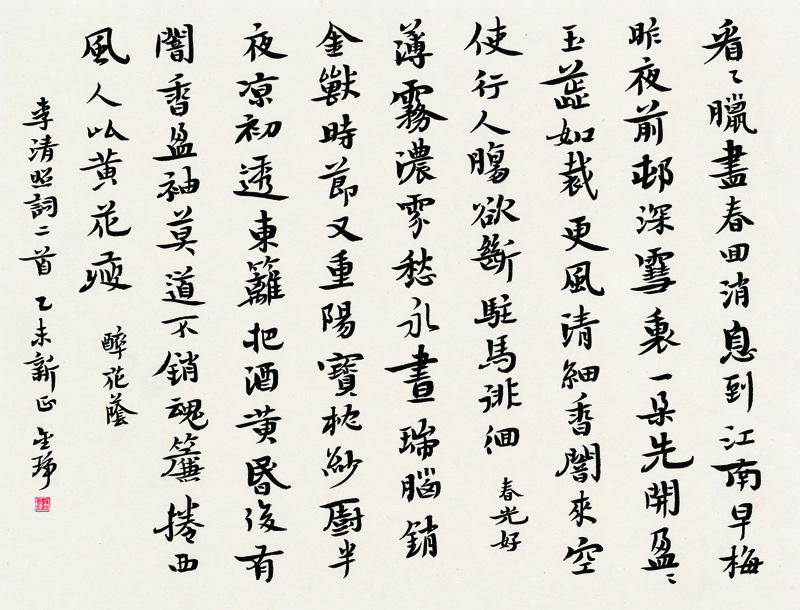 看〻臘盡春囬消息到江南早梅
昨夜前邨深雪裏一朵先開盈〻
玉蕋如裁更風清細香闇來空
使行人腸欲斷駐馬徘徊
春光好
薄霧濃雰愁永晝瑞腦銷
金獸時節又重陽寶枕紗厨半
夜凉初透東籬把酒黄昏後有
闇香盈袖莫道不銷魂簾捲西
風人以黄花瘦
醉花蔭
李清照詞二首 乙未新正